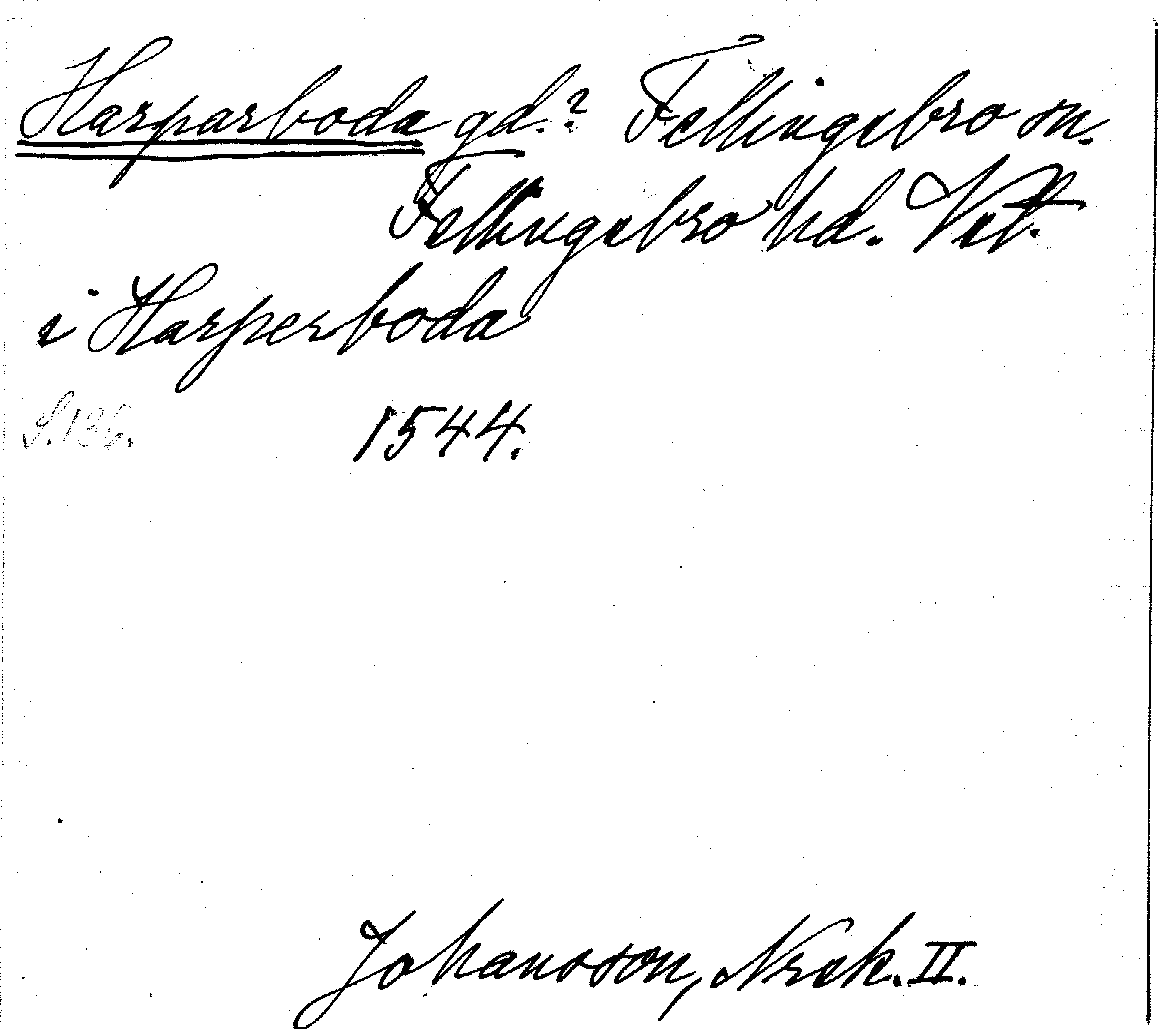 Harparboda gd.? Fellingsbro sn.
Fellingsbro hd. Vstl.
i Harperboda
S.136. 1544.
Johansson, Nrck. II.